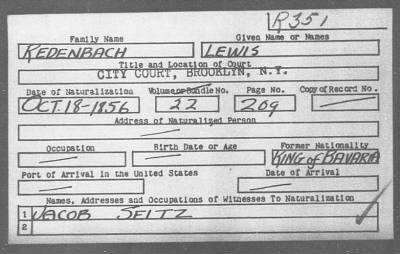 R351
Family Name Given Name or Names
KEDENBACH LEWIS
Title and Location of Court
CITY COURT, BROOKLYN, N.Y.
Date of Naturalization Volume or Bundle No. Page No. Copy of Record No.
OCT. 18-1856 22 209
Address of Naturalized Person
Occupation Birth Date or Age Former Nationality
KING of BAVARIA
Port of Arrival in the United States Date of Arrival
Names, Addresses and Occupations of Witnesses To Naturalization
1 JACOB SEITZ
2